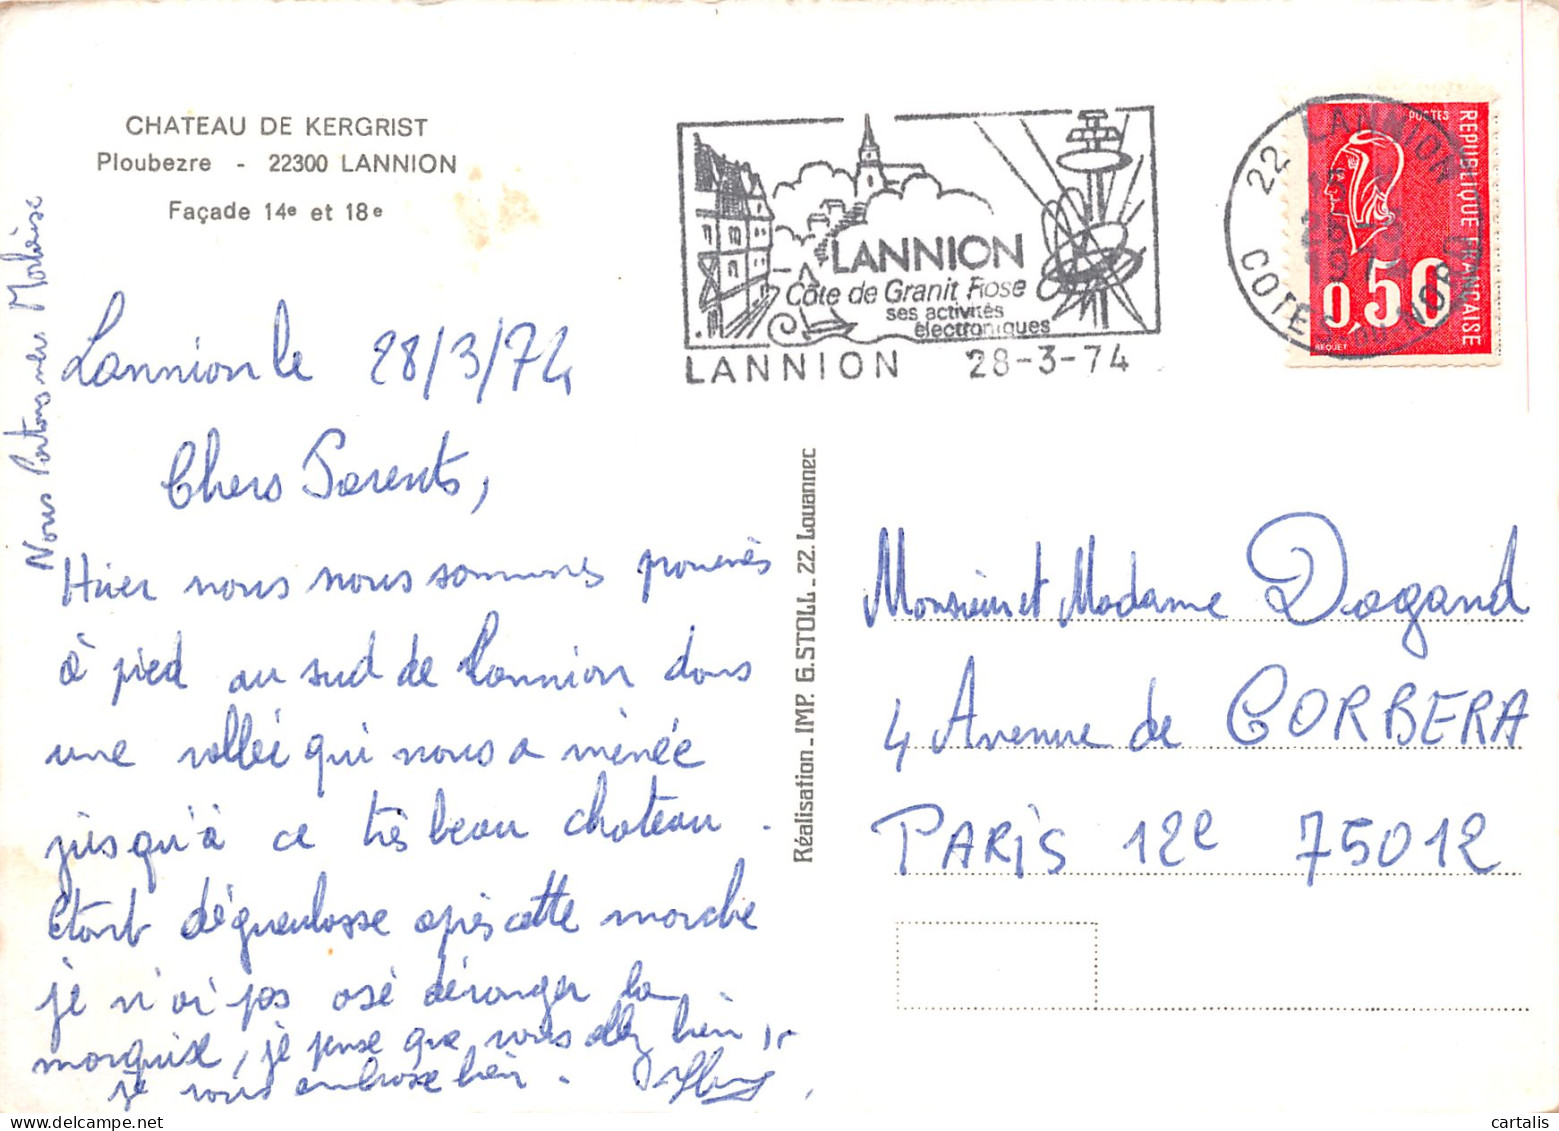 CHATEAU DE KERGRIST
Ploubezre - 22300 LANNION
Façade 14e et 18e
Nous Partons vers Morlaise
Lannion le 28/3/74
Chers Parents,
Hier nous nous sommes promenés
à pied au sud de Lannion dans
une vallée qui nous a menée
jusqu'à ce très beau chateau.
Etant dégueulasse après cette marche
je n'ai pas osé déranger la
marquise, je pense que vous allez bien,
je vous embrasse bien.
LANNION
Côte de Granit Rose
ses activités
électroniques
LANNION 28-3-74
22 LANNION
COTES DU NORD
POSTES
REPUBLIQUE FRANCAISE
0,50
BEQUET
Réalisation - IMP. G. STOLL - 22. Louannec
Monsieur et Madame Dagand
4 Avenue de CORBERA
PARIS 12e 75012
cartalis